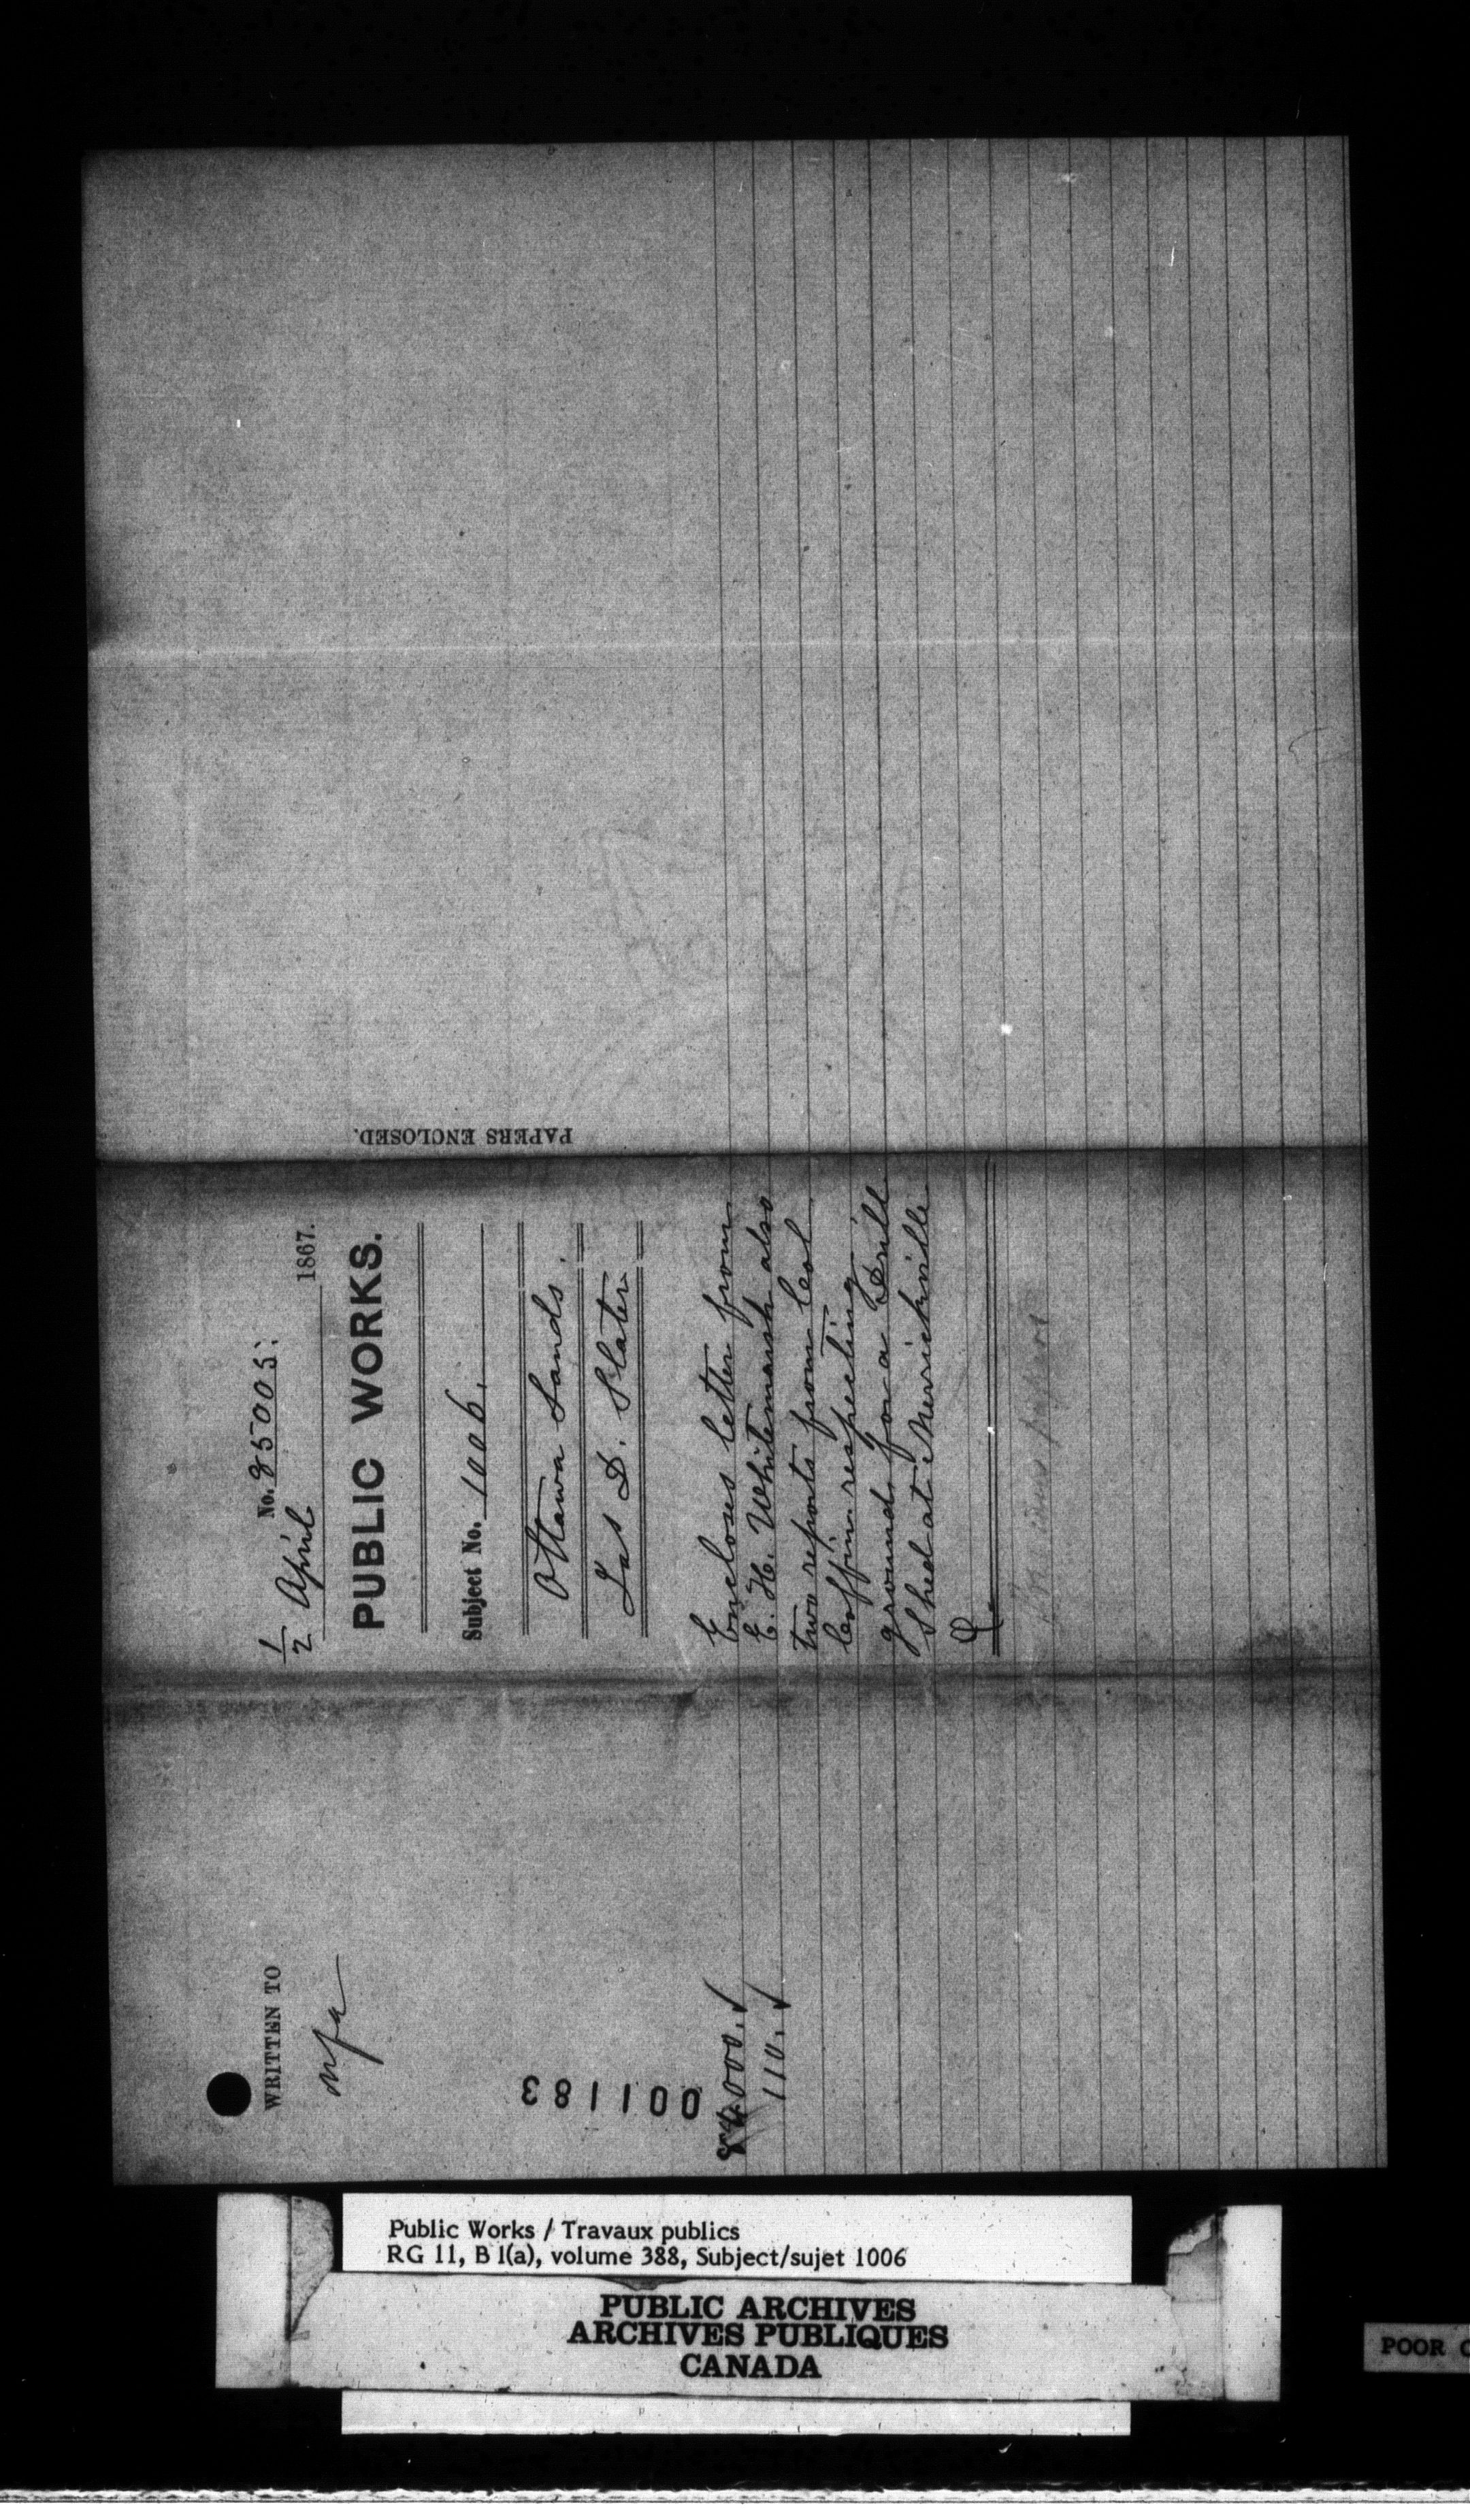 No. 85005.
1/2 April 1867.
PUBLIC WORKS.
Subject No. 1006.
Ottawa Lands.
Jas D. Slater
Encloses letter from
E. H. Whitmarsh also
two reports from Col
Coffin respecting
grounds for a Drill
Shed at Merrickville
PAPERS ENCLOSED.
WRITTEN TO
nfa
001183
000.
110.
Public Works / Travaux publics
RG 11, B 1(a), volume 388, Subject/sujet 1006
PUBLIC ARCHIVES
ARCHIVES PUBLIQUES
CANADA
POOR C